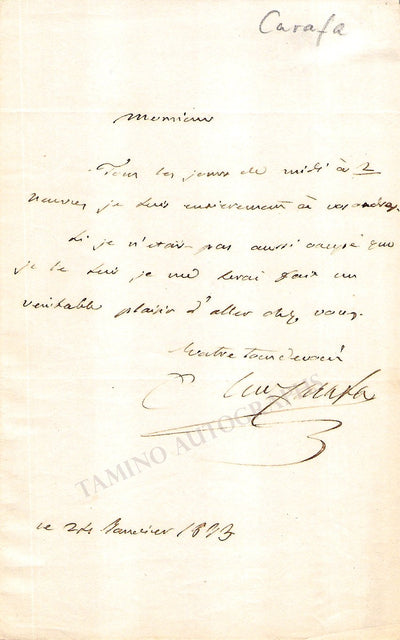 Carafa
Monsieur
Tous les jours de midi à 2
heures je suis entierement à vos ordres
Si je n'etais pas aussi occupé que
je le suis je me serai fait un
veritable plaisir d'aller chez vous.
Votre tout devoué
Carafa
TAMINO AUTOGRAPHS
ce 24 Janvier 1893